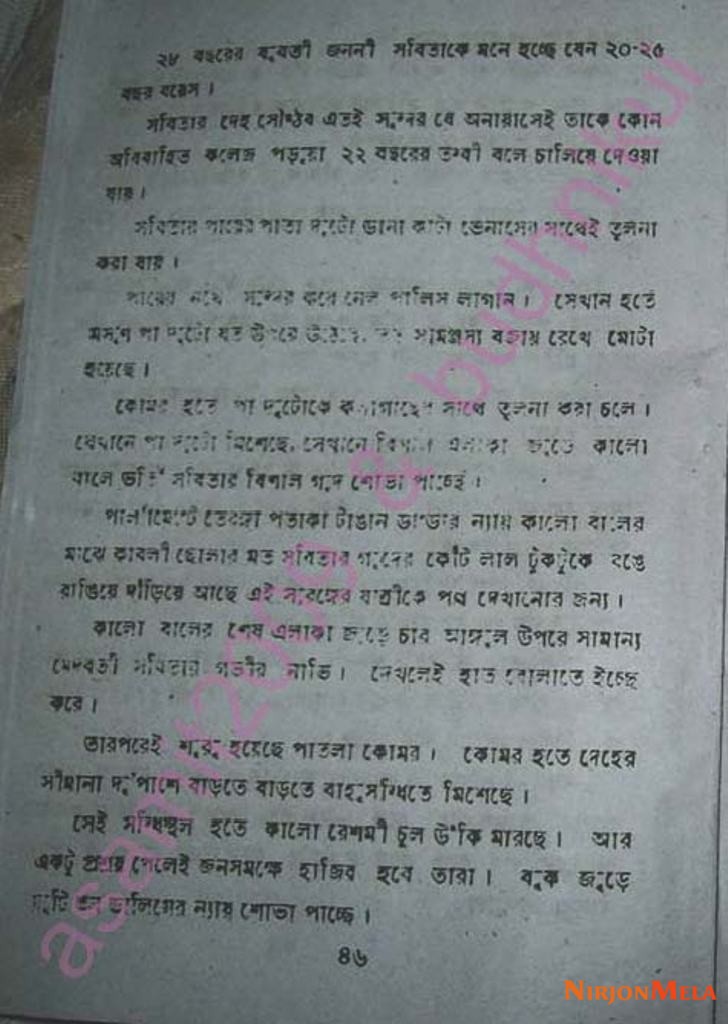 ২৮ বছরের যুবতী জননী সবিতাকে মনে হচ্ছে যেন ২০-২৫
বছর বয়েস ।
সবিতার দেহ সৌষ্ঠব এতই সুন্দর যে অনায়াসেই তাকে কোন
অবিবাহিত কলেজ পড়ুয়া ২২ বছরের তন্বী বলে চালিয়ে দেওয়া
যায় ।
সবিতার পায়ের পাতা দুটো ডানা কাটা ভেনাসের সাথেই তুলনা
করা যায় ।
পায়ের নখে সুন্দর করে নেল পালিস লাগান । সেখান হতে
মসৃণ পা দুটো যত উপরে উঠেছে, সামঞ্জস্য বজায় রেখে মোটা
হয়েছে ।
কোমর হতে পা দুটোকে কলাগাছের সাথে তুলনা করা চলে ।
যেখানে পা দুটো মিশেছে, সেখানে বিশাল এলাকা জুড়ে কালো
বালে ভর্তি সবিতার বিশাল গুদ শোভা পাচ্ছে ।
পার্লামেন্টে তেরঙ্গা পতাকা টাঙান ডান্ডার ন্যায় কালো বালের
মাঝে কাবলী ছোলার মত সবিতার গুদের কোঁট লাল টুকটুকে রঙে
রাঙিয়ে দাঁড়িয়ে আছে এই সুরঙ্গের যাত্রীকে পথ দেখানোর জন্য ।
কালো বালের শেষ এলাকা জুড়ে চার আঙ্গুল উপরে সামান্য
মেদবতী সবিতার গভীর নাভি । দেখলেই হাত বোলাতে ইচ্ছে
করে ।
তারপরেই শুরু হয়েছে পাতলা কোমর । কোমর হতে দেহের
সীমানা দু'পাশে বাড়তে বাড়তে বাহুসন্ধিতে মিশেছে ।
সেই সন্ধিস্থল হতে কালো রেশমী চুল উঁকি মারছে । আর
একটু প্রশ্রয় পেলেই জনসমক্ষে হাজির হবে তারা । বুক জুড়ে
দুটি স্তন ডালিমের ন্যায় শোভা পাচ্ছে ।
৪৬
asanti2009 & budhnikul
NIRJONMELA